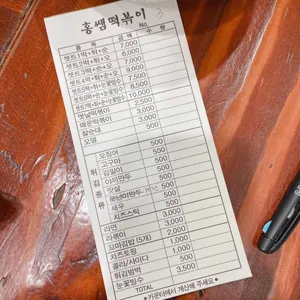 홍쌤떡볶이
No.
품목 금액 수량
셋트1떡+튀+순 7,000
셋트2떡+튀+오 6,000
셋트3떡+순+오 7,000
셋트4떡+튀+순+오 9,000
7,500
8,500
10,000
옛날떡볶이 2,500
매운떡볶이 3,000
찰순대 3,000
오뎅 500
튀김종류
오징어 500
고구마 500
김말이 500
야끼만두 500
맛살 500
500
새우 500
치즈스틱 500
라면 3,000
라볶이 3,000
꼬마김밥 (5개) 2,000
치즈토핑 1,000
콜라/사이다 1,000
튀김범벅 500
눈꽃빙수 3,500
TOTAL
*카운터에서 계산해 주세요*